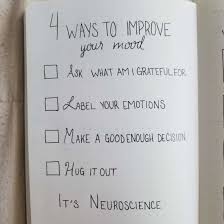 4 WAYS TO IMPROVE
your mood
ASK WHAT AM I GRATEFUL FOR
LABEL YOUR EMOTIONS
MAKE A GOOD ENOUGH DECISION
HUG IT OUT
IT'S NEUROSCIENCE